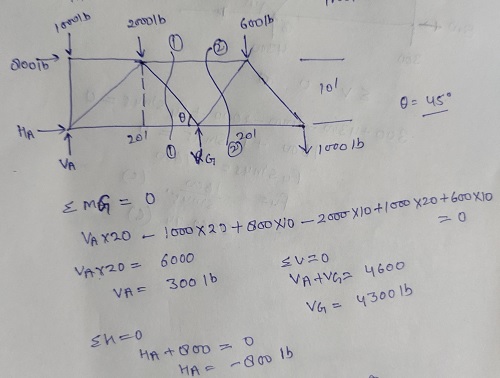 1000lb
2000lb
600lb
① ②
800lb
10'
θ = 45°
θ
HA
20'
20'
① ②
VA
VG
1000lb
Σ MG = 0
VA×20 - 1000×20 + 800×10 - 2000×10 + 1000×20 + 600×10 = 0
VA×20 = 6000
VA = 300 lb
ΣV=0
VA+VG = 4600
VG = 4300 lb
ΣH=0
HA + 800 = 0
HA = -800 lb